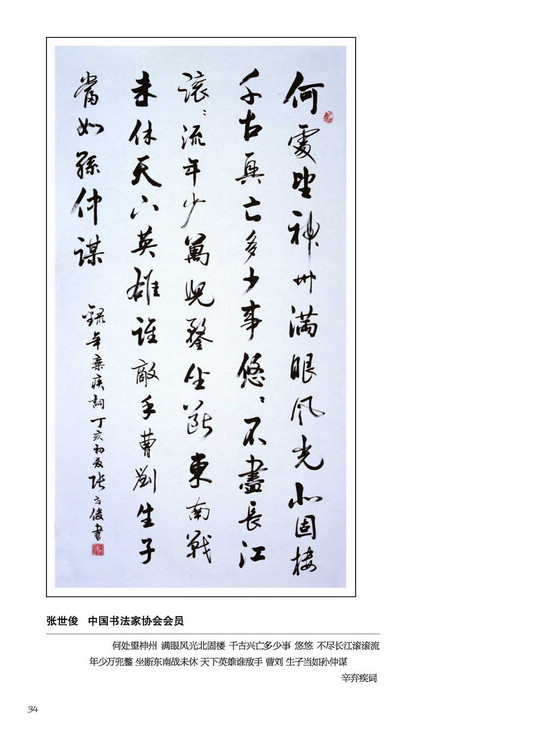 何處望神州滿眼風光北固樓
千古興亡多少事悠〻不盡長江
滾〻流年少萬兜鍪坐斷東南戰
未休天下英雄誰敵手曹劉生子
當如孫仲謀
錄辛棄疾詞丁亥初夏張世俊書
张世俊 中国书法家协会会员
何处望神州 满眼风光北固楼 千古兴亡多少事 悠悠 不尽长江滚滚流
年少万兜鍪 坐断东南战未休 天下英雄谁敌手 曹刘 生子当如孙仲谋
辛弃疾词
34